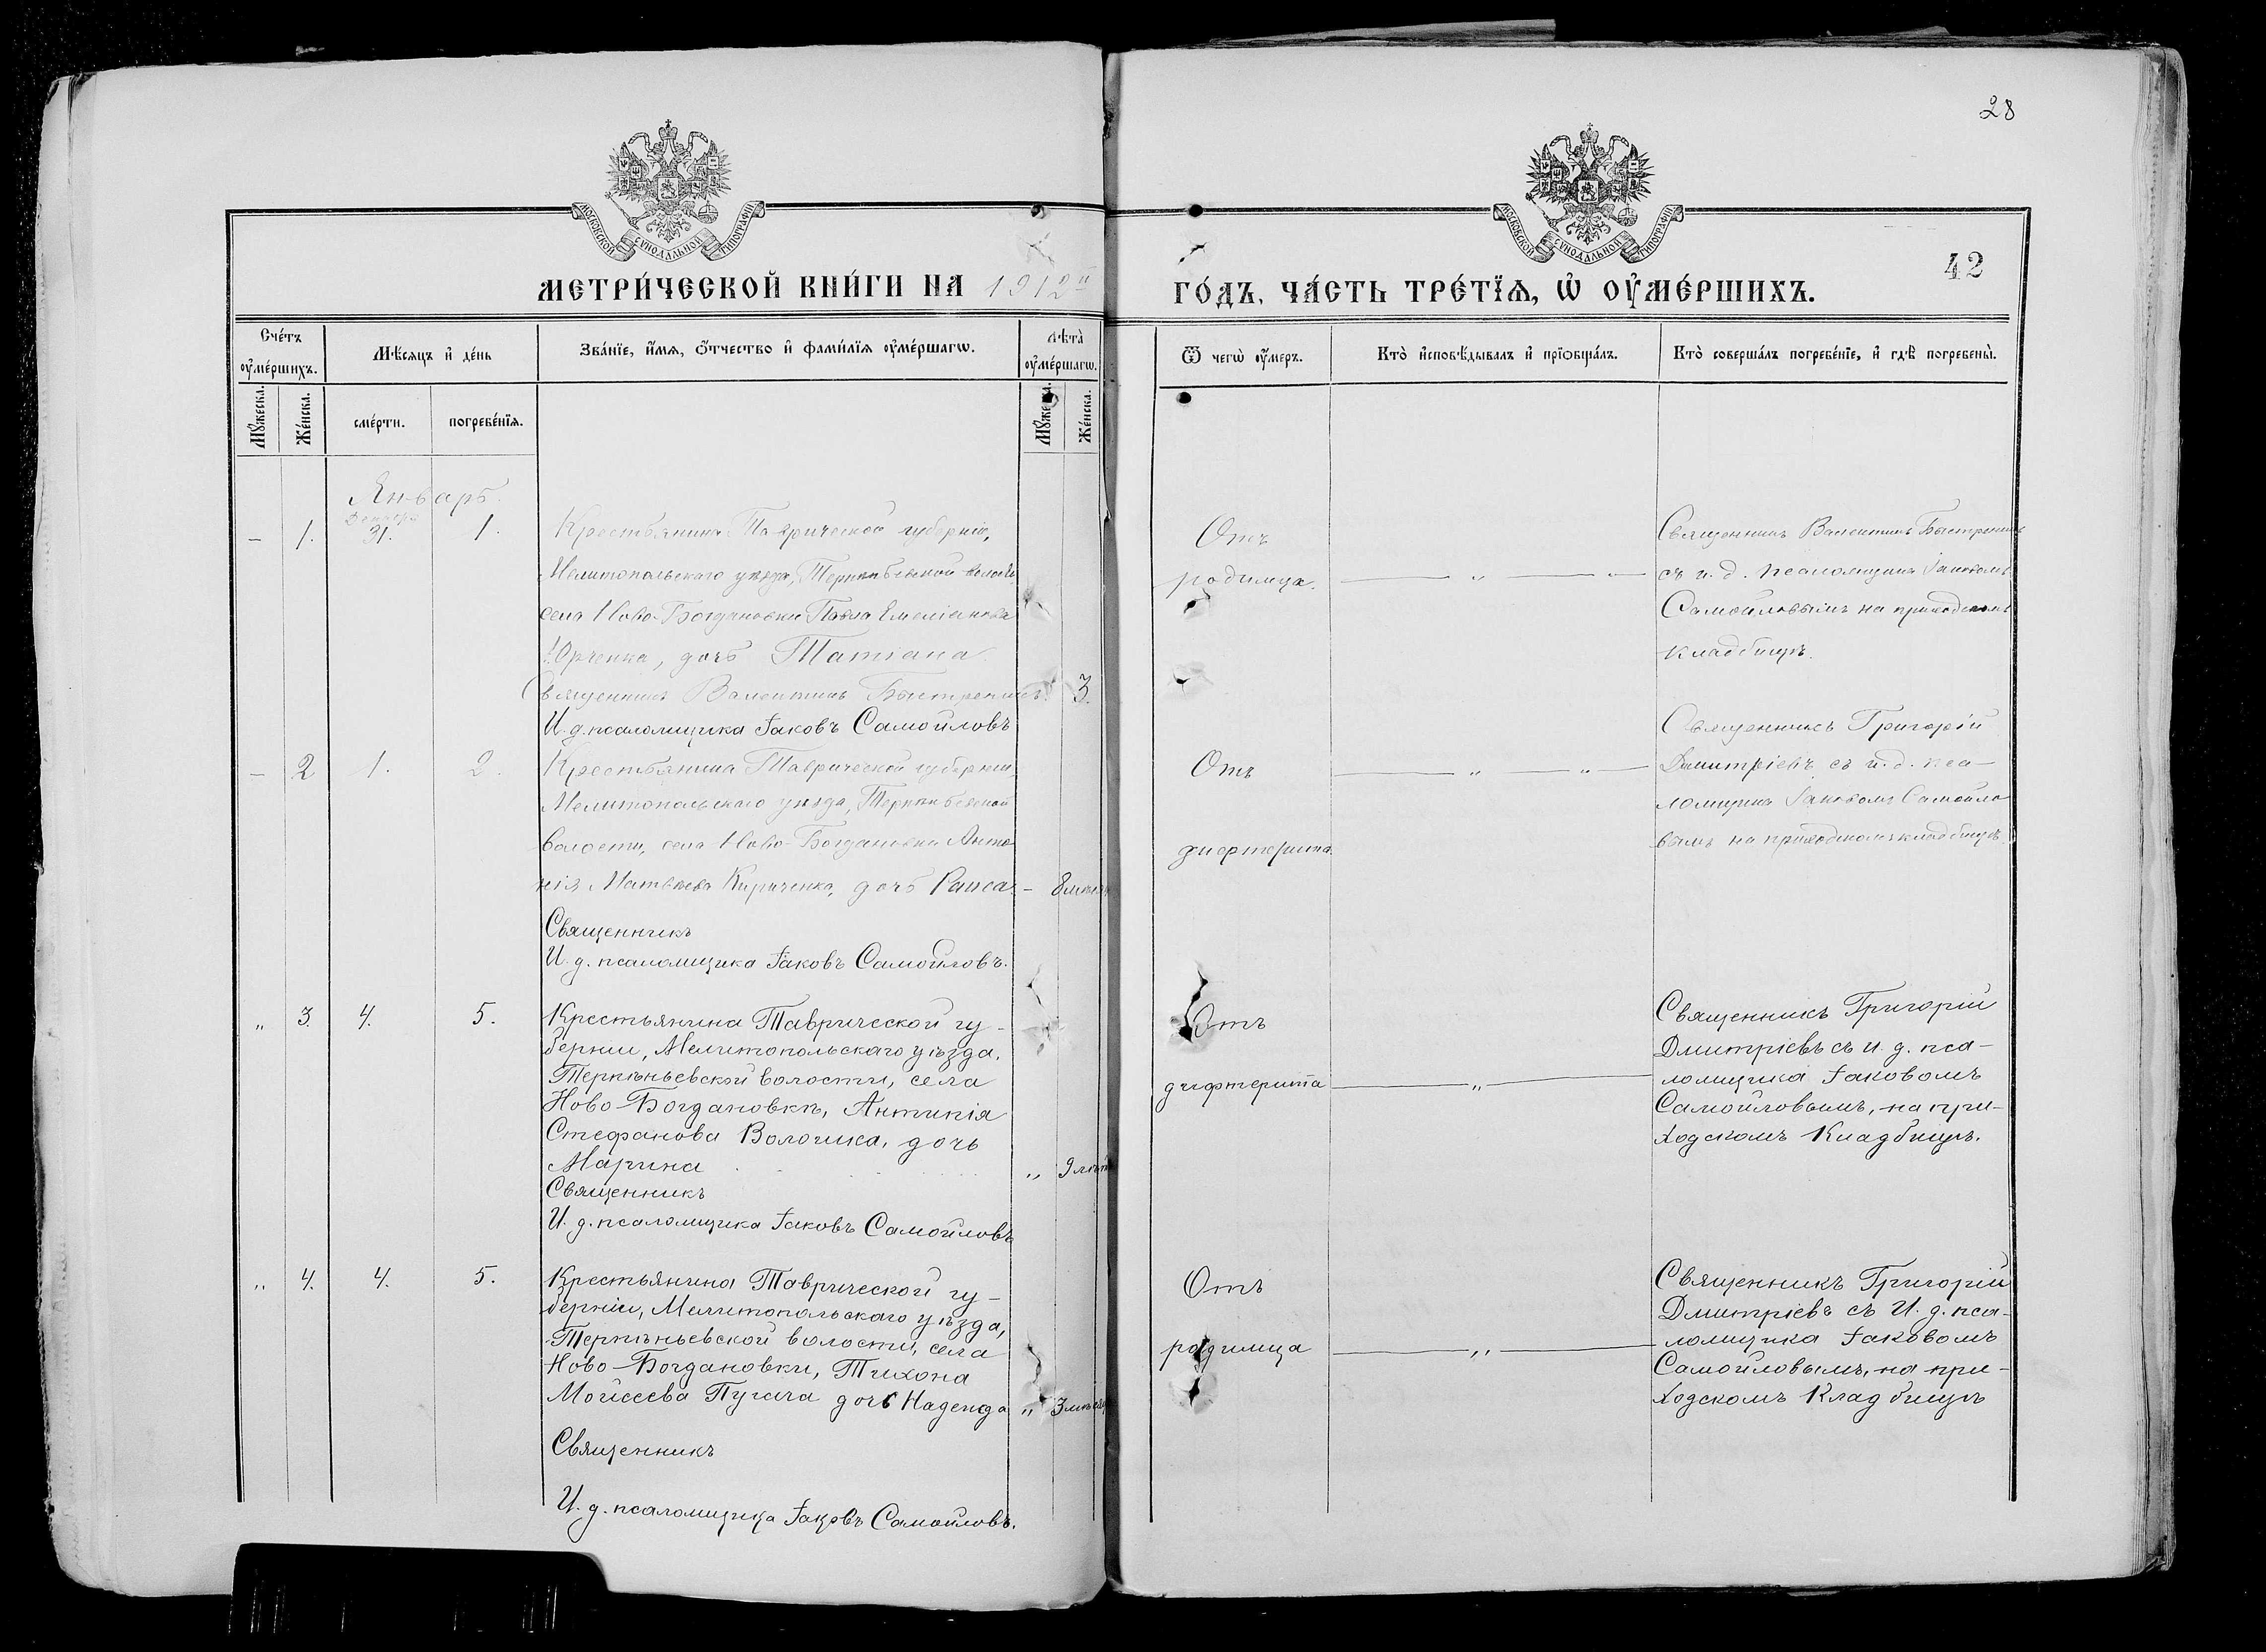 28
МОСКОВСКОЙ СѴНОДАЛЬНОЙ ТИПОГРАФІИ
МОСКОВСКОЙ СѴНОДАЛЬНОЙ ТИПОГРАФІИ
МЕТРИ́ЧЕСКОЙ КНИ́ГИ НА 1912й
ГО́ДЪ, ЧА́СТЬ ТРЕ́ТЇѦ, Ѡ҆ ОУ҆МЕ́РШИХЪ.
42
Сче́тъ оу҆ме́ршихъ.
Мѣ́сяцъ и҆ де́нь
Зва́нїе, и҆́мѧ, ѻ҆́тчество и҆ фами́лїѧ оу҆ме́ршагѡ.
Лѣта̀ оу҆ме́ршагѡ.
Ѿ чегѡ̀ оу҆́меръ.
Кто̀ и҆сповѣ́дывалъ и҆ прїѡбща́лъ.
Кто̀ соверша́лъ погребе́нїе, и҆ гдѣ̀ погребены̀.
Мꙋ́жеска.
Же́нска.
сме́рти.
погребе́нїѧ.
Мꙋ́жеска.
Же́нска.
Январь.
Декабря
– 1. 31. 1.
Крестьянина Таврической губерніи,
Мелитопольскаго уѣзда, Терпѣньевской волости
села Ново-Богдановки Павла Емеліанова
Юрченка, дочь Татіана
3.
Священникъ Валентинъ
И. д. псаломщика Іаковъ Самойловъ
Отъ
родимца.
Священникъ Валентинъ
съ и. д. псаломщика Іаковомъ
Самойловымъ на приходскомъ
кладбищѣ.
– 2 1. 2.
Крестьянина Таврической губерніи,
Мелитопольскаго уѣзда, Терпѣньевской
волости, села Ново-Богдановки Анто-
нія Матвѣева Кириченка, дочь Раиса
– 8 мѣсяц
Священникъ
И. д. псаломщика Іаковъ Самойловъ.
Отъ
дифтерита.
Священникъ Григорій
Дмитріевъ съ и. д. пса-
ломщика Іаковомъ Самойло
вымъ на приходскомъ кладбищѣ.
„ 3. 4. 5.
Крестьянина Таврической гу-
берніи, Мелитопольскаго уѣзда,
Терпѣньевской волости, села
Ново-Богдановки, Антипія
Стефанова Волошка, дочь
Марина
„ 9 лѣтъ
Священникъ
И. д. псаломщика Іаковъ Самойловъ
Отъ
дифтерита
Священникъ Григорій
Дмитріевъ съ и. д. пса-
ломщика Іаковомъ
Самойловымъ, на при-
ходскомъ Кладбищѣ.
„ 4. 4. 5.
Крестьянина Таврической гу-
берніи, Мелитопольскаго уѣзда,
Терпѣньевской волости, села
Ново-Богдановки, Тихона
Моисеева Пугача дочь Надежда
„ 3 мѣсяц
Священникъ
И. д. псаломщика Іаковъ Самойловъ.
Отъ
родимца
Священникъ Григорій
Дмитріевъ съ И. д. пса-
ломщика Іаковомъ
Самойловымъ, на при-
ходскомъ Кладбищѣ